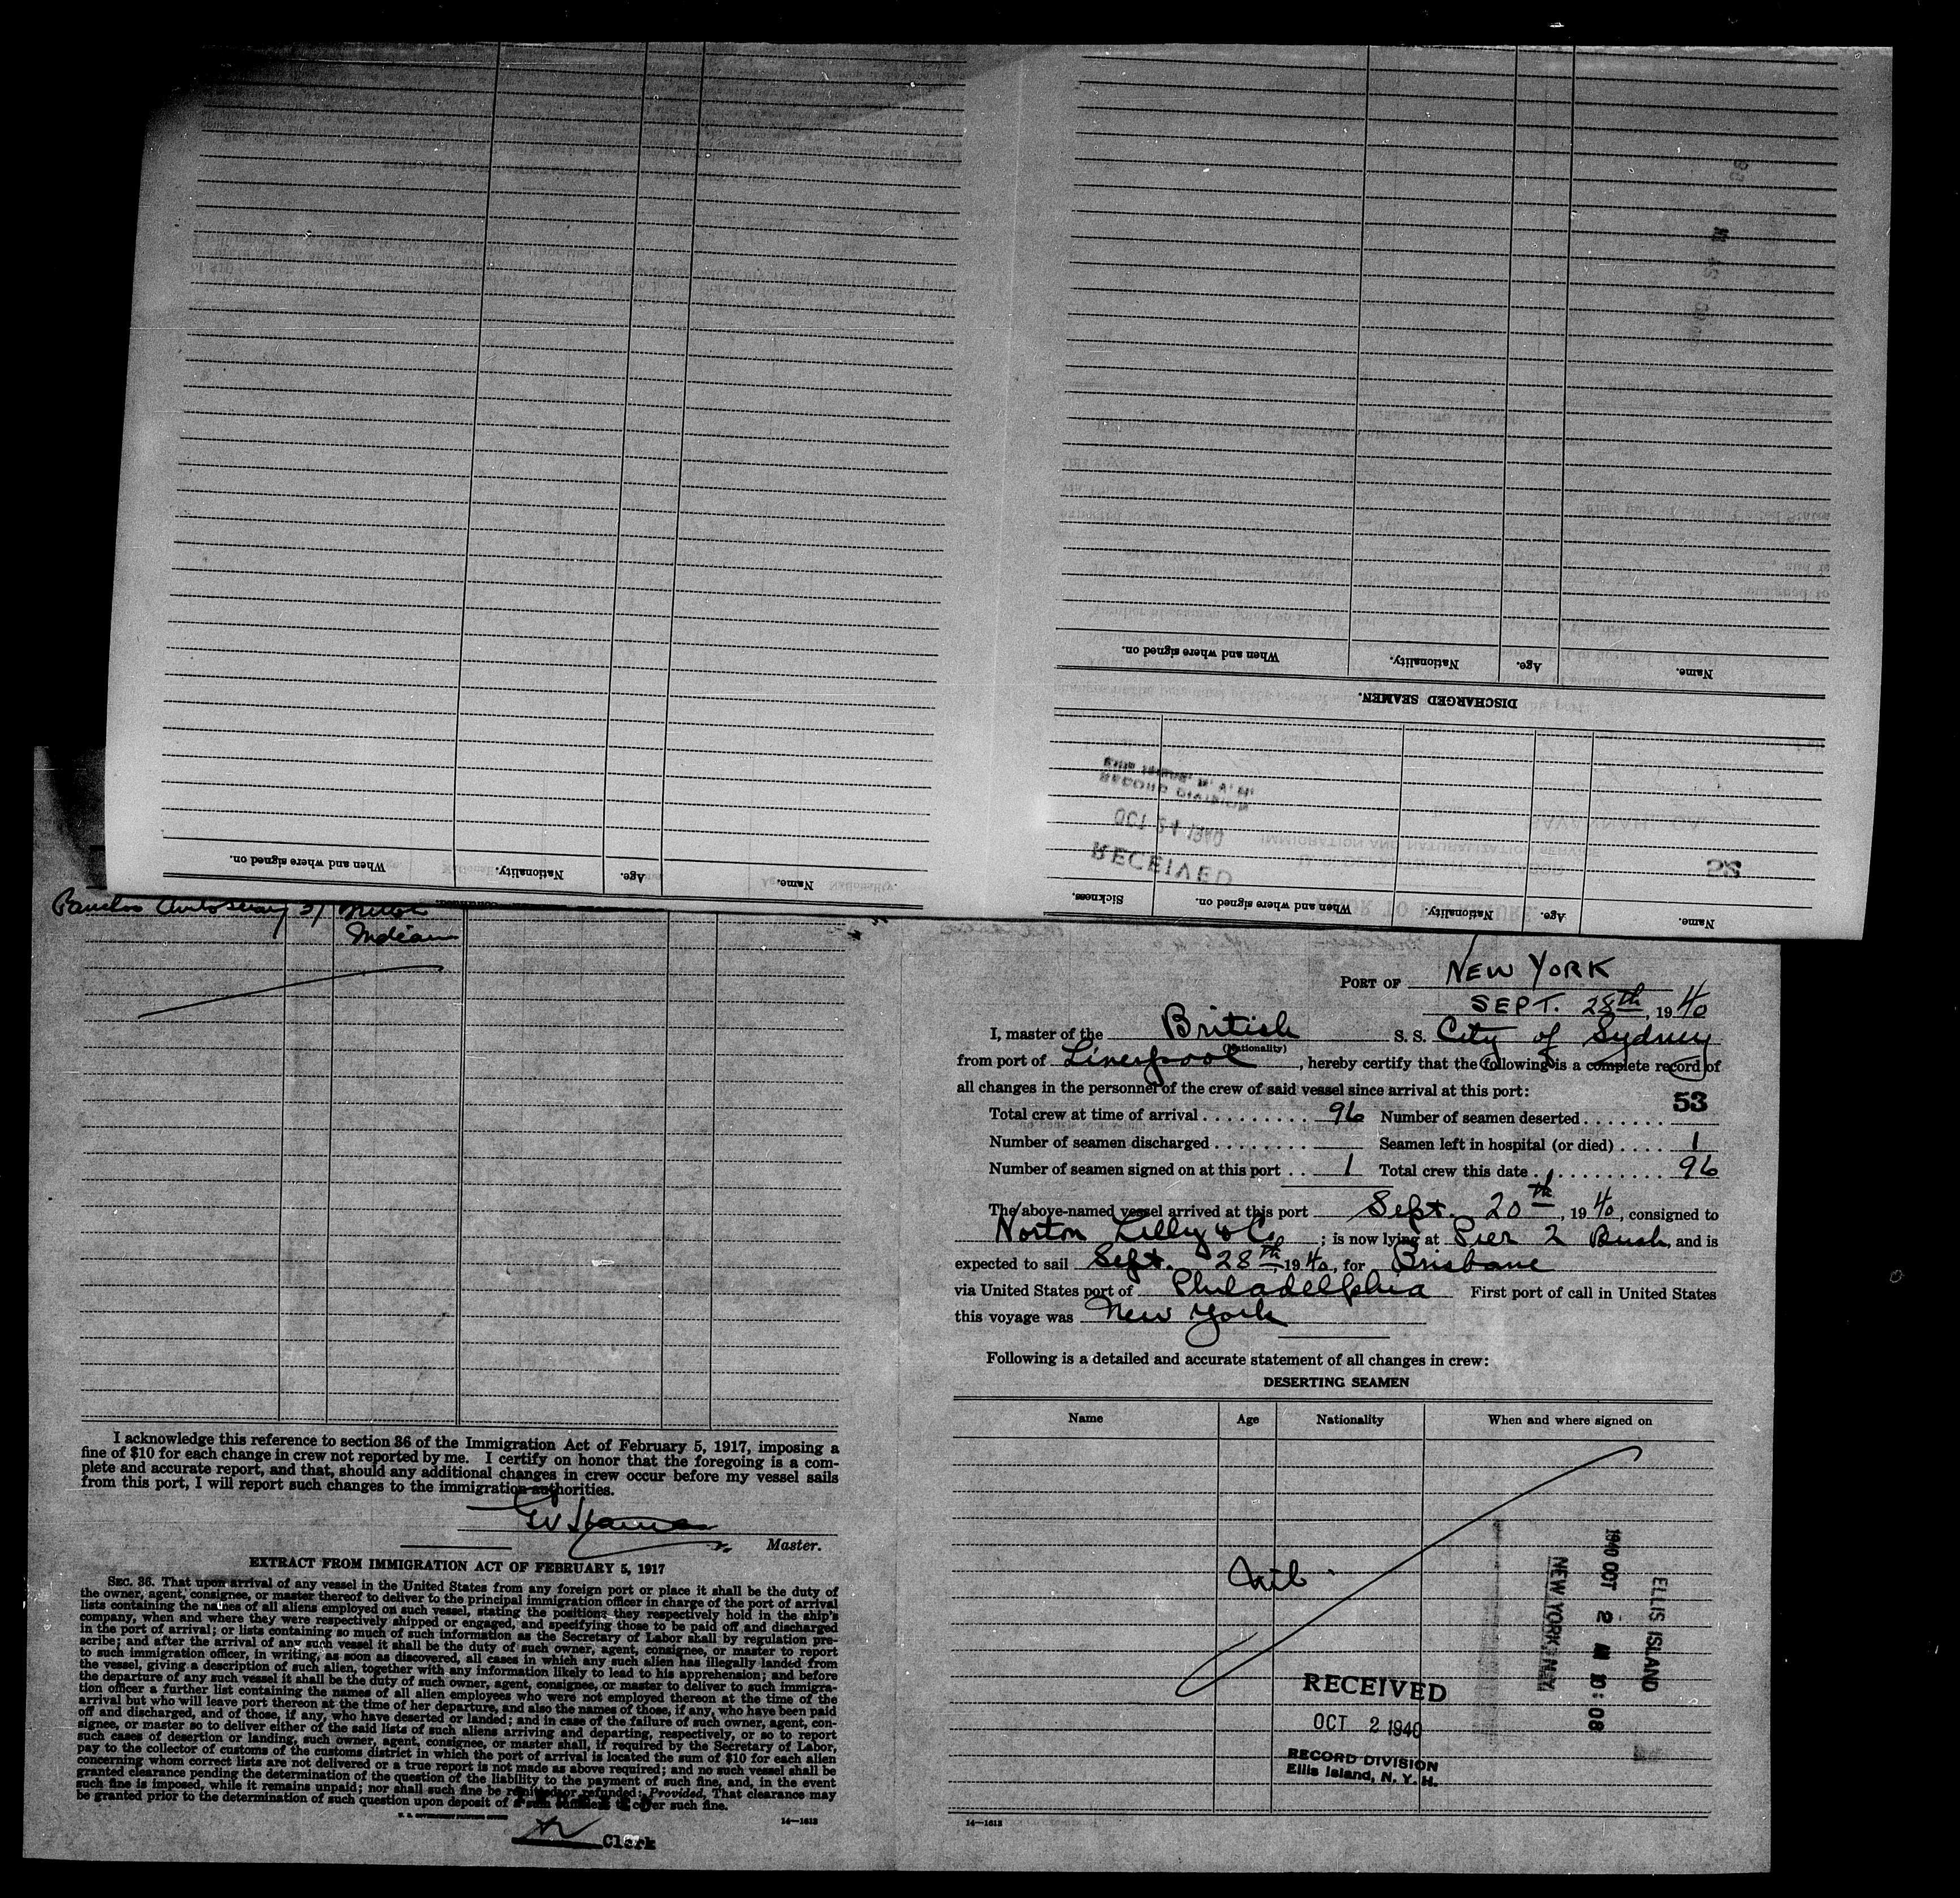 When and where signed on.
Nationality.
Age.
Name.
Name.
Age.
Nationality.
When and where signed on.
DISCHARGED SEAMEN.
RECEIVED
OCT 24 1940
RECORD DIVISION
Ellis Island, N. Y. H.
IMMIGRATION AND NATURALIZATION SERVICE
SAVANNAH, GA.
52
Sickness.
When and where signed on.
Nationality.
Age.
Name.
Indian
PORT OF NEW YORK
SEPT. 28th, 1940
I, master of the British S. S. City of Sydney
(Nationality)
from port of Liverpool, hereby certify that the following is a complete record of
all changes in the personnel of the crew of said vessel since arrival at this port:
53
Total crew at time of arrival . . . . . . . . . . 96 Number of seamen deserted . . . . . . .
Number of seamen discharged . . . . . . . . . Seamen left in hospital (or died) . . . . 1
Number of seamen signed on at this port . . 1 Total crew this date . . . . . . . . . . . 96
The above-named vessel arrived at this port Sept. 20th, 1940, consigned to
Norton Lilly & Co. ; is now lying at Pier 2 Bush, and is
expected to sail Sept. 28th, 1940, for Brisbane
via United States port of Philadelphia First port of call in United States
this voyage was New York
Following is a detailed and accurate statement of all changes in crew:
DESERTING SEAMEN
Name Age Nationality When and where signed on
RECEIVED
OCT 2 1940
RECORD DIVISION
Ellis Island, N. Y. H.
1940 OCT 2 AM 10:08
ELLIS ISLAND
NEW YORK, N.Y.
14—1613
I acknowledge this reference to section 36 of the Immigration Act of February 5, 1917, imposing a
fine of $10 for each change in crew not reported by me. I certify on honor that the foregoing is a com-
plete and accurate report, and that, should any additional changes in crew occur before my vessel sails
from this port, I will report such changes to the immigration authorities.
Master.
EXTRACT FROM IMMIGRATION ACT OF FEBRUARY 5, 1917
SEC. 36. That upon arrival of any vessel in the United States from any foreign port or place it shall be the duty of
the owner, agent, consignee, or master thereof to deliver to the principal immigration officer in charge of the port of arrival
lists containing the names of all aliens employed on such vessel, stating the positions they respectively hold in the ship's
company, when and where they were respectively shipped or engaged, and specifying those to be paid off and discharged
in the port of arrival; or lists containing so much of such information as the Secretary of Labor shall by regulation pre-
scribe; and after the arrival of any such vessel it shall be the duty of such owner, agent, consignee, or master to report
to such immigration officer, in writing, as soon as discovered, all cases in which any such alien has illegally landed from
the vessel, giving a description of such alien, together with any information likely to lead to his apprehension; and before
the departure of any such vessel it shall be the duty of such owner, agent, consignee, or master to deliver to such immigra-
tion officer a further list containing the names of all alien employees who were not employed thereon at the time of the
arrival but who will leave port thereon at the time of her departure, and also the names of those, if any, who have been paid
off and discharged, and of those, if any, who have deserted or landed; and in case of the failure of such owner, agent, con-
signee, or master so to deliver either of the said lists of such aliens arriving and departing, respectively, or so to report
such cases of desertion or landing, such owner, agent, consignee, or master shall, if required by the Secretary of Labor,
pay to the collector of customs of the customs district in which the port of arrival is located the sum of $10 for each alien
concerning whom correct lists are not delivered or a true report is not made as above required; and no such vessel shall be
granted clearance pending the determination of the question of the liability to the payment of such fine, and, in the event
such fine is imposed, while it remains unpaid; nor shall such fine be remitted or refunded: Provided, That clearance may
be granted prior to the determination of such question upon deposit of a sum sufficient to cover such fine.
14—1613
Clerk